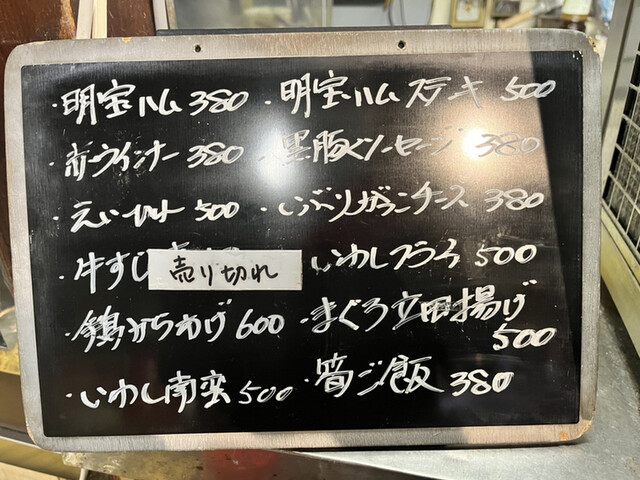 ・明宝ハム 380
・赤ウインナー 380
・えいひれ 500
・牛すじ
売り切れ
・鶏からあげ 600
・いわし南蛮 500
・明宝ハムステーキ 500
・黒豚ソーセージ 380
・いぶりがっこチーズ 380
いわしフライ 500
・まぐろ立田揚げ
500
・筍ご飯 380